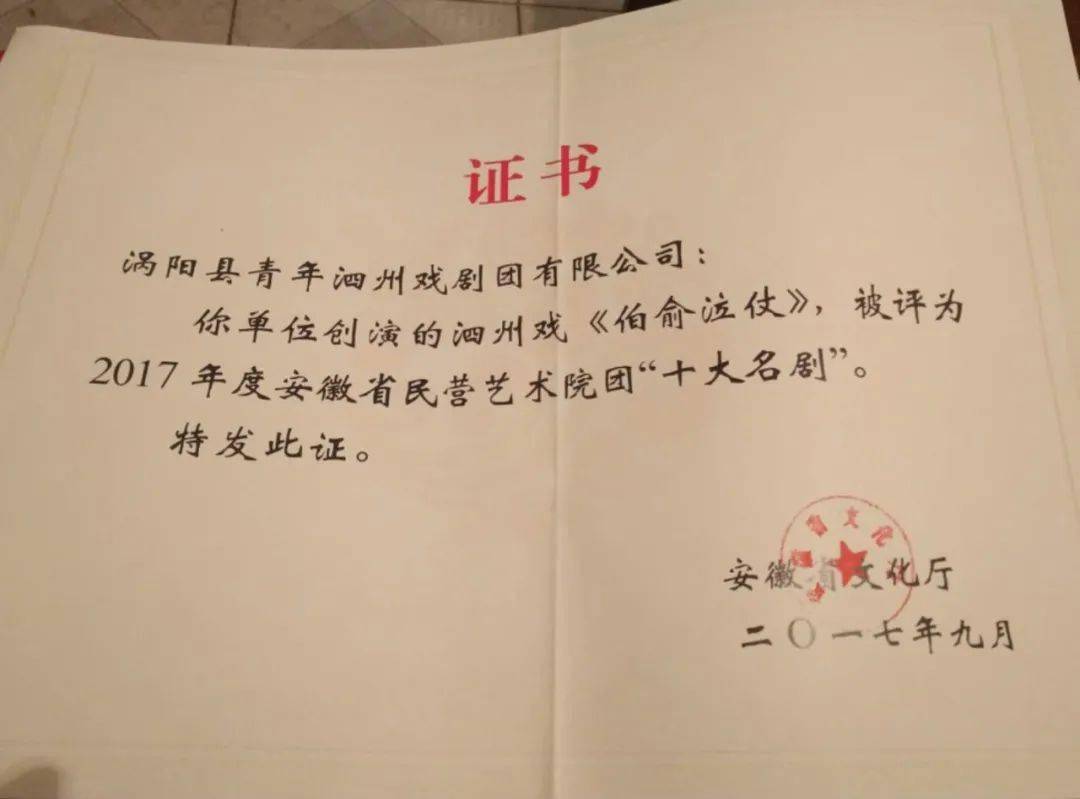 证书
涡阳县青年泗州戏剧团有限公司：
你单位创演的泗州戏《伯俞泣仗》，被评为
2017年度安徽省民营艺术院团“十大名剧”。
特发此证。
安徽省文化厅
二〇一七年九月